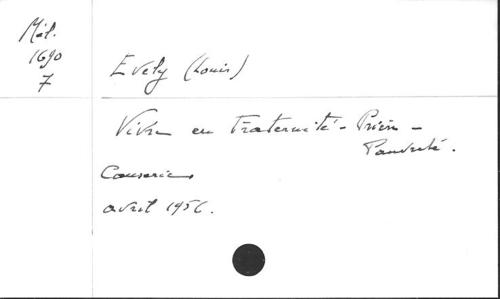 Mél.
1690
7
Evely (Louis)
Vivre en Fraternité - Prière -
Pauvreté.
Causeries
avril 1956.